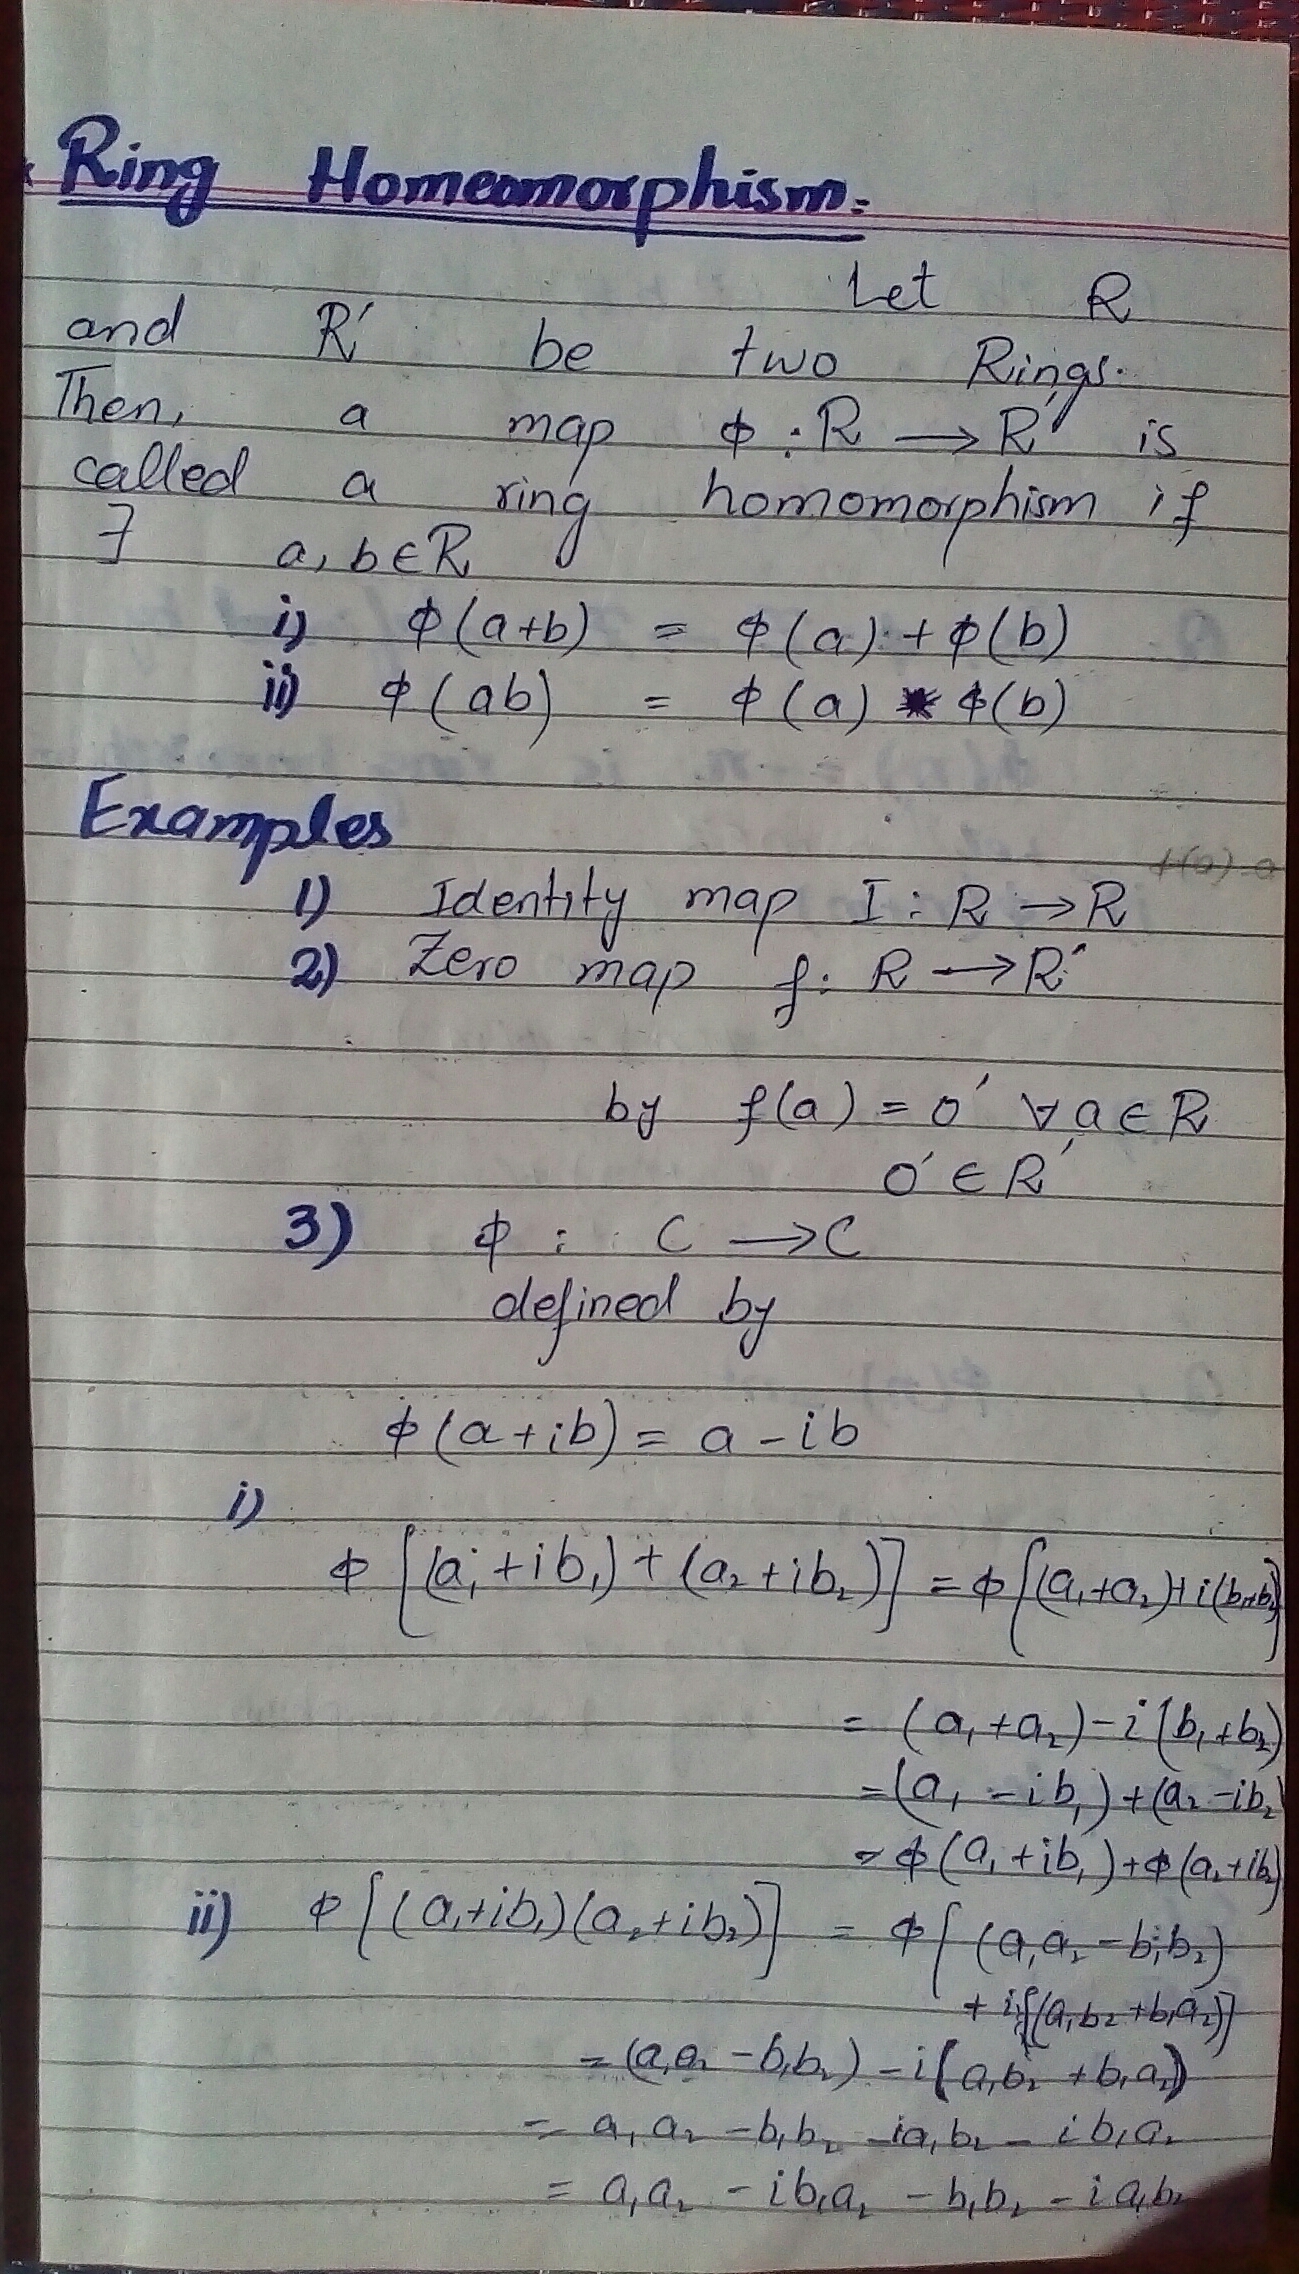 * Ring Homeomorphism:
Let R
and R' be two Rings.
Then, a map ϕ : R → R' is
called a ring homomorphism if
∃ a, b ∈ R
i) ϕ(a+b) = ϕ(a) + ϕ(b)
ii) ϕ(ab) = ϕ(a) * ϕ(b)
Examples
1) Identity map I : R → R
2) Zero map f : R → R'
by f(a) = 0' ∀ a ∈ R
0' ∈ R'
3) ϕ : C → C
defined by
ϕ(a+ib) = a - ib
i)
ϕ[(a₁+ib₁) + (a₂+ib₂)] = ϕ[(a₁+a₂)+i(b₁+b₂)]
= (a₁+a₂) - i(b₁+b₂)
= (a₁ - ib₁) + (a₂ - ib₂)
= ϕ(a₁+ib₁) + ϕ(a₂+ib₂)
ii) ϕ[(a₁+ib₁)(a₂+ib₂)] = ϕ[(a₁a₂ - b₁b₂)
+ i(a₁b₂ + b₁a₂)]
= (a₁a₂ - b₁b₂) - i(a₁b₂ + b₁a₂)
= a₁a₂ - b₁b₂ - ia₁b₂ - ib₁a₂
= a₁a₂ - ib₁a₂ - b₁b₂ - ia₁b₂